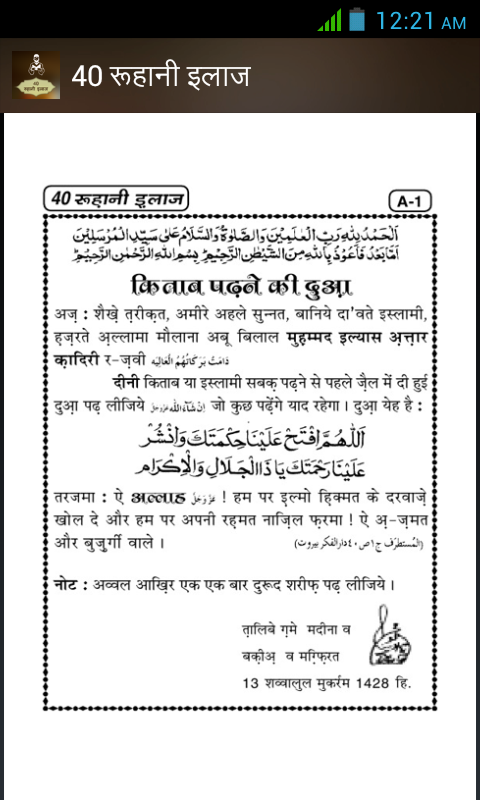 12:21 AM
40 रूहानी इलाज
40 रूहानी इलाज
A-1
اَلْحَمْدُ لِلّٰهِ رَبِّ الْعٰلَمِيْنَ وَالصَّلٰوةُ وَالسَّلَامُ عَلٰى سَيِّدِ الْمُرْسَلِيْنَ
اَمَّا بَعْدُ فَاَعُوْذُ بِاللّٰهِ مِنَ الشَّيْطٰنِ الرَّجِيْمِ ؕ بِسْمِ اللّٰهِ الرَّحْمٰنِ الرَّحِيْمِ ؕ
किताब पढ़ने की दुआ़
अज़् : शैखे़ त़रीक़त, अमीरे अहले सुन्नत, बानिये दा'वते इस्लामी,
ह़ज़रते अ़ल्लामा मौलाना अबू बिलाल मुह़म्मद इल्यास अ़त्त़ार
क़ादिरी र-ज़वी دَامَتْ بَرَكَاتُهُمُ الْعَالِيَه
दीनी किताब या इस्लामी सबक़ पढ़ने से पहले जै़ल में दी हुई
दुआ़ पढ़ लीजिये اِنْ شَآءَ اللّٰه عَزَّوَجَلَّ जो कुछ पढ़ेंगे याद रहेगा । दुआ़ येह है :
اَللّٰهُمَّ افْتَحْ عَلَيْنَا حِكْمَتَكَ وَانْشُرْ
عَلَيْنَا رَحْمَتَكَ يَا ذَا الْجَلَالِ وَالْاِكْرَام
तरजमा : ऐ अल्लाह عَزَّوَجَلَّ ! हम पर इ़ल्मो ह़िक्मत के दरवाज़े
खोल दे और हम पर अपनी रह़मत नाज़िल फ़रमा ! ऐ अ़-ज़मत
और बुज़ुर्गी वाले । (اَلْمُسْتَطْرَف ج١ ص٤٠ دارالفكر بيروت)
नोट : अव्वल आख़िर एक एक बार दुरूद शरीफ़ पढ़ लीजिये ।
त़ालिबे ग़मे मदीना व
बक़ीअ़ व मग़्फ़िरत
13 शव्वालुल मुकर्रम 1428 हि.